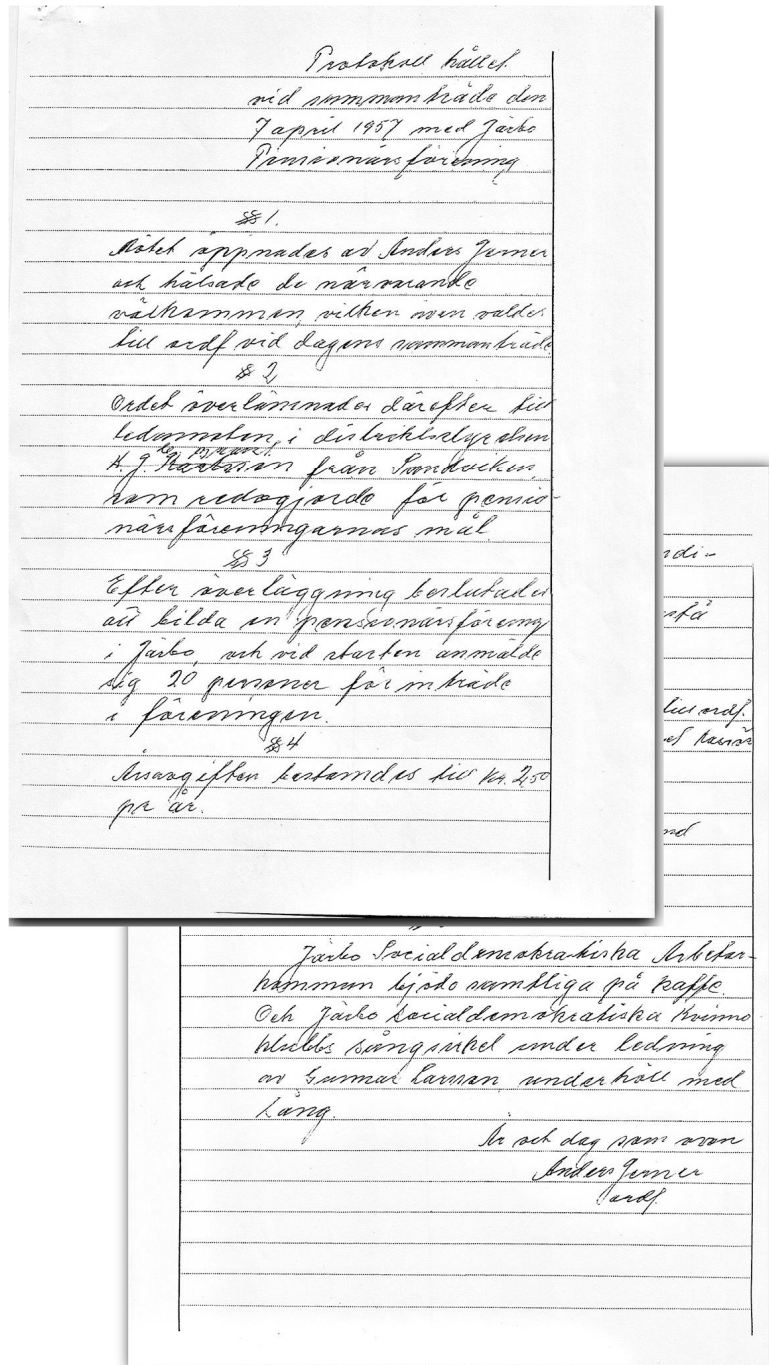 Protokoll hållet
vid sammanträde den
7 april 1957 med Järbo
Pensionärsförening
§ 1.
Mötet öppnades av Anders Jerner
och hälsade de närvarande
välkommen, vilken även valdes
till ordf vid dagens sammanträde
§ 2
Ordet överlämnades därefter till
ledamoten, i distriktstyrelsen
H. J. från Sandviken,
som redogjorde för pensio-
närsföreningarnas mål.
§ 3
Efter överläggning beslutades
att bilda en pensionärsförening
i Järbo, och vid starten anmälde
sig 20 personer för inträde
i föreningen.
§ 4
Årsavgiften bestämdes till Kr. 2,50
pr år.
ndi-
stå
till ordf.
nd
Järbo Socialdemokratiska Arbetar-
kommun bjödo samtliga på kaffe.
Och Järbo socialdemokratiska kvinno
klubbs sångsirkel under ledning
av Gunnar Larsson underhöll med
sång.
År och dag som ovan
Anders Jerner
ordf.